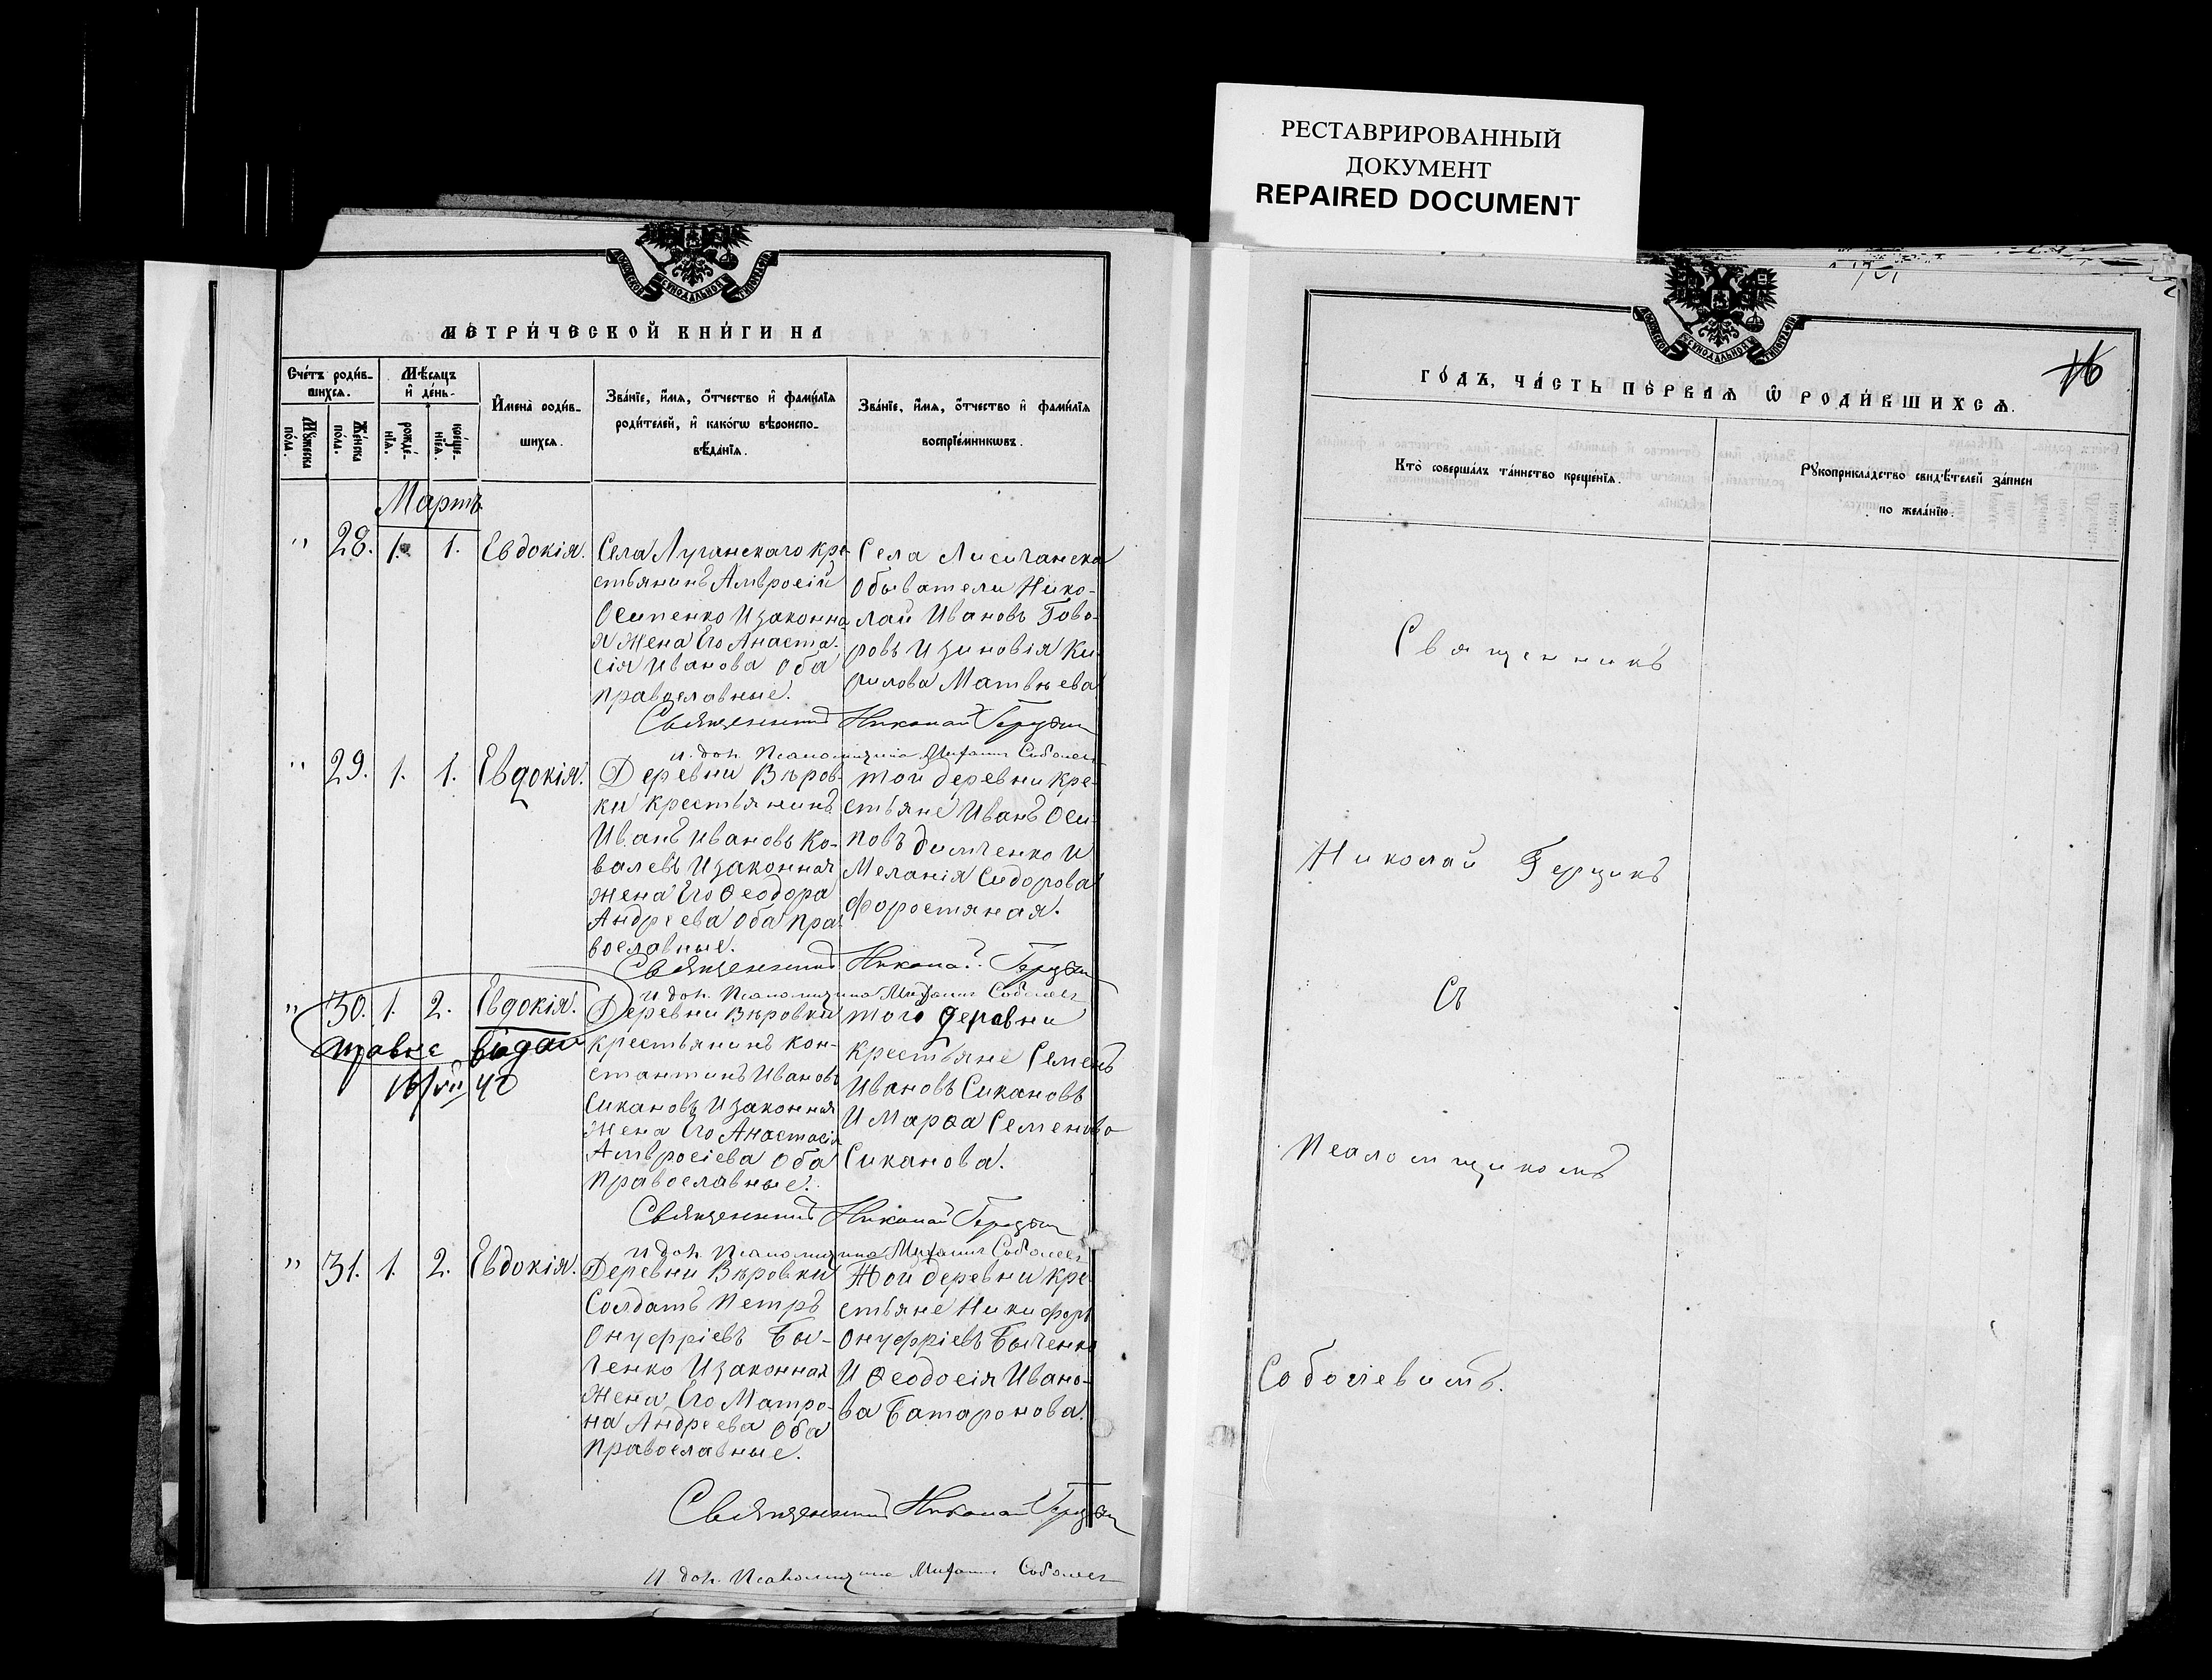 РЕСТАВРИРОВАННЫЙ
ДОКУМЕНТ
REPAIRED DOCUMENT
МЕТРИ́ЧЕСКОЙ КНИ́ГИ НА
Сче́тъ роди́в-
шихся.
Му́жеска
по́ла.
Же́нска
по́ла.
Мѣ́сяцъ
и҆ де́нь.
рожде́-
нїя.
креще́-
нїя.
И҆мена̀ роди́в-
шихся.
Зва́нїе, и҆́мя, о҆́тчество и҆ фами́лїя
роди́телей, и҆ како́гѡ вѣроиспо-
вѣ́данїя.
Зва́нїе, и҆́мя, о҆́тчество и҆ фами́лїя
воспрїе́мникѡвъ.
Мартъ
" 28. 1. 1. Евдокія.
Села Луганскаго кре-
стьянинъ Амвросій
Осипенко И законна
я Жена Его Анаста-
сія Иванова Оба
православные.
Села Лисичанска
Обыватели Нико-
лай Ивановъ Гово-
ровъ И Зиновія Ки-
рилова Матвѣева
Священникъ Николай Герцикъ
и. доп. Псаломщика Михаилъ Соболев
" 29. 1. 1. Евдокія.
Деревни Вѣров-
ки крестьянинъ
Иванъ Ивановъ Ко-
валевъ И законная
жена Его Ѳеодора
Андреева Оба пра-
вославные.
той деревни кре-
стьяне Иванъ Оси-
повъ Димченко И
Меланія Сидорова
Форостяная.
Священникъ Николай Герцикъ
И доп. Псаломщика Михаилъ Соболев
" 30. 1. 2. Евдокія.
выдан
16/VII 40
Деревни Вѣровки
крестьянинъ Кон-
стантинъ Ивановъ
Сикановъ И законная
Жена Его Анастасія
Амвросіева Оба
Православные.
того деревни
крестьяне Семенъ
Ивановъ Сикановъ
И Марѳа Семенова
Сиканова.
Священникъ Николай Герцикъ
И доп. Псаломщика Михаилъ Соболев
" 31. 1. 2. Евдокія.
Деревни Вѣровки
Солдатъ Петръ
Онуфріевъ Бы-
ченко И законная
Жена Его Матро-
на Андреева Оба
Православные.
Той деревни кре-
стьяне Никифоръ
Онуфріевъ Быченко
И Ѳеодосія Ивано-
ва Батаронова.
Священникъ Николай Герцикъ
И доп. Псаломщика Михаилъ Соболев
16
ГО́ДЪ, ЧА́СТЬ ПЕ́РВАЯ Ѿ РОДИ́ВШИХСЯ.
Кто̀ соверша́лъ та́инство креще́нїя.
Рꙋкоприкла́дство свидѣ́телей за́писи
по жела́нїю.
Священникъ
Николай Герцикъ
Съ
Псаломщикомъ
Соболевымъ.